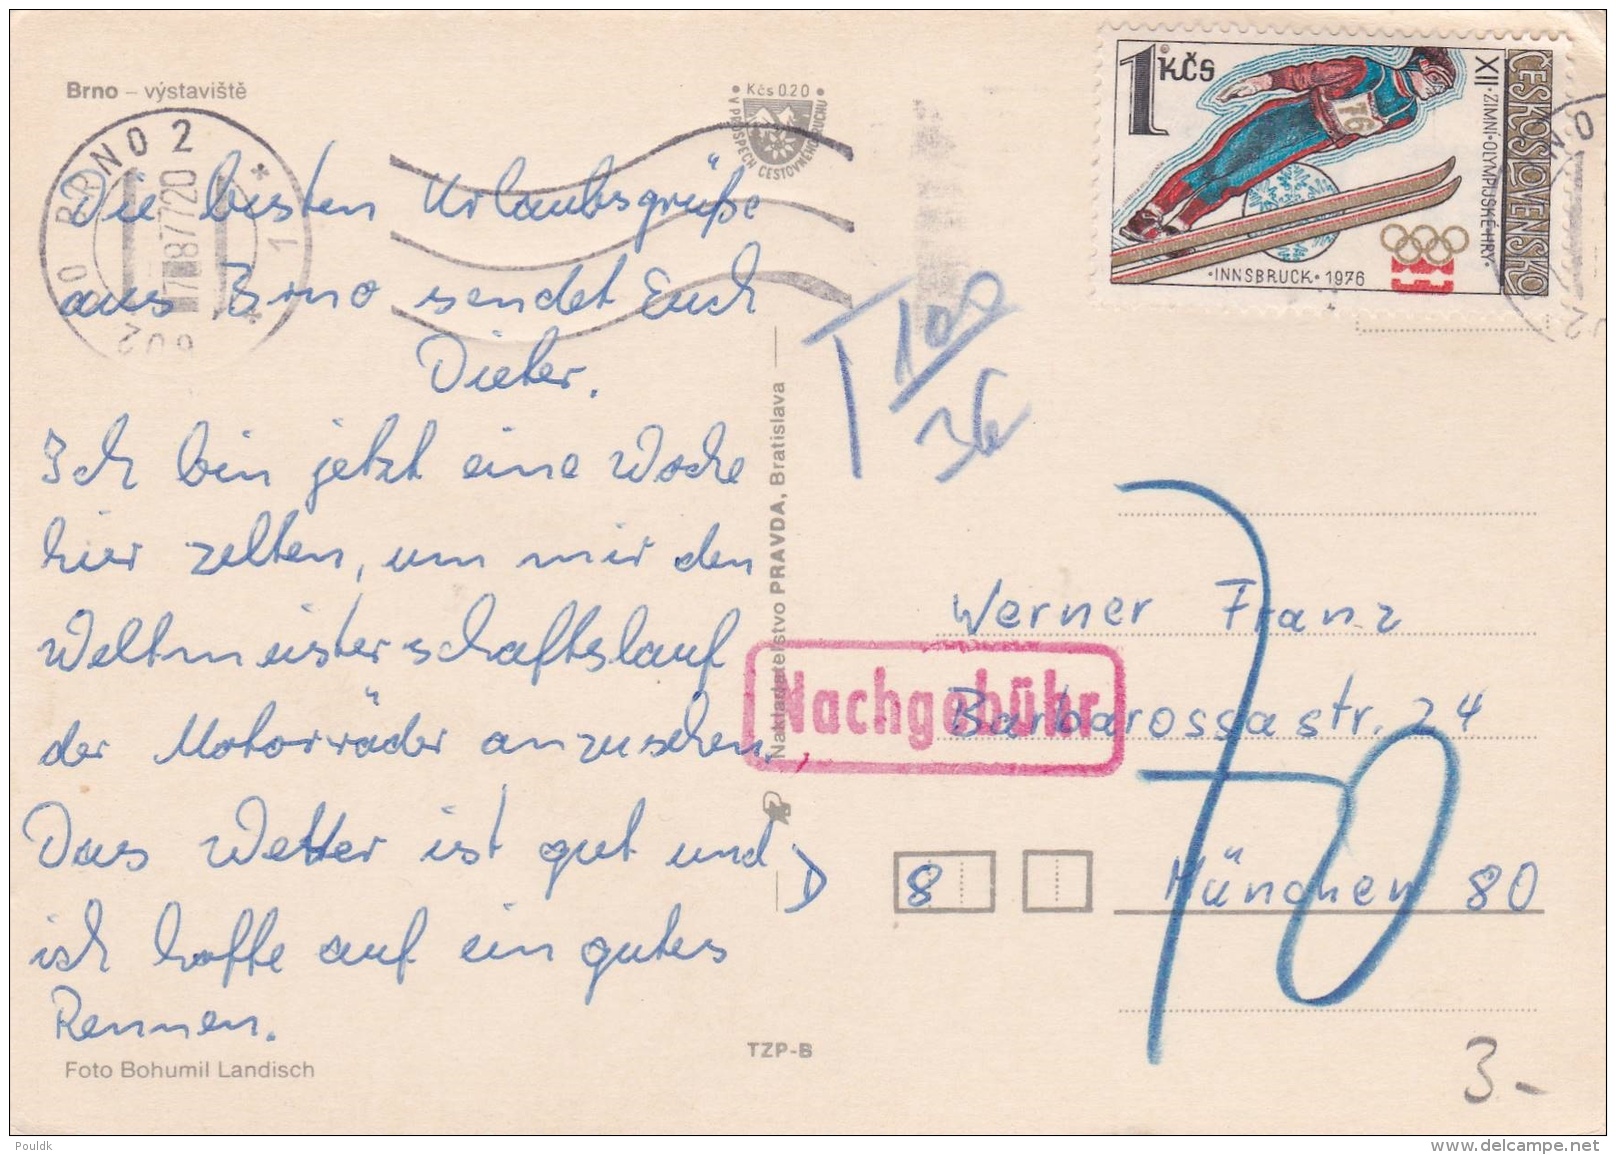 Brno – výstaviště
• Kčs 0.20 •
V PROSPĚCH CESTOVNÉHO RUCHU
BRNO 2
7 8 77 20
602 00
1
Die besten Urlaubsgrüße
aus Brno sendet Euch
Dieter.
Ich bin jetzt eine Woche
hier zelten, um mir den
Weltmeisterschaftslauf
der Motorräder anzusehen.
Das Wetter ist gut und
ich hoffe auf ein gutes
Rennen.
Foto Bohumil Landisch
Nakladatelstvo PRAVDA, Bratislava
TZP-B
1 KČS
ČESKOSLOVENSKO
XII • ZIMNÍ • OLYMPIJSKÉ • HRY •
76
• INNSBRUCK • 1976
T 100
36
Nachgebühr
70
Werner Franz
Barbarossastr. 24
D 8 München 80
3.-
Pouldk
www.delcampe.net